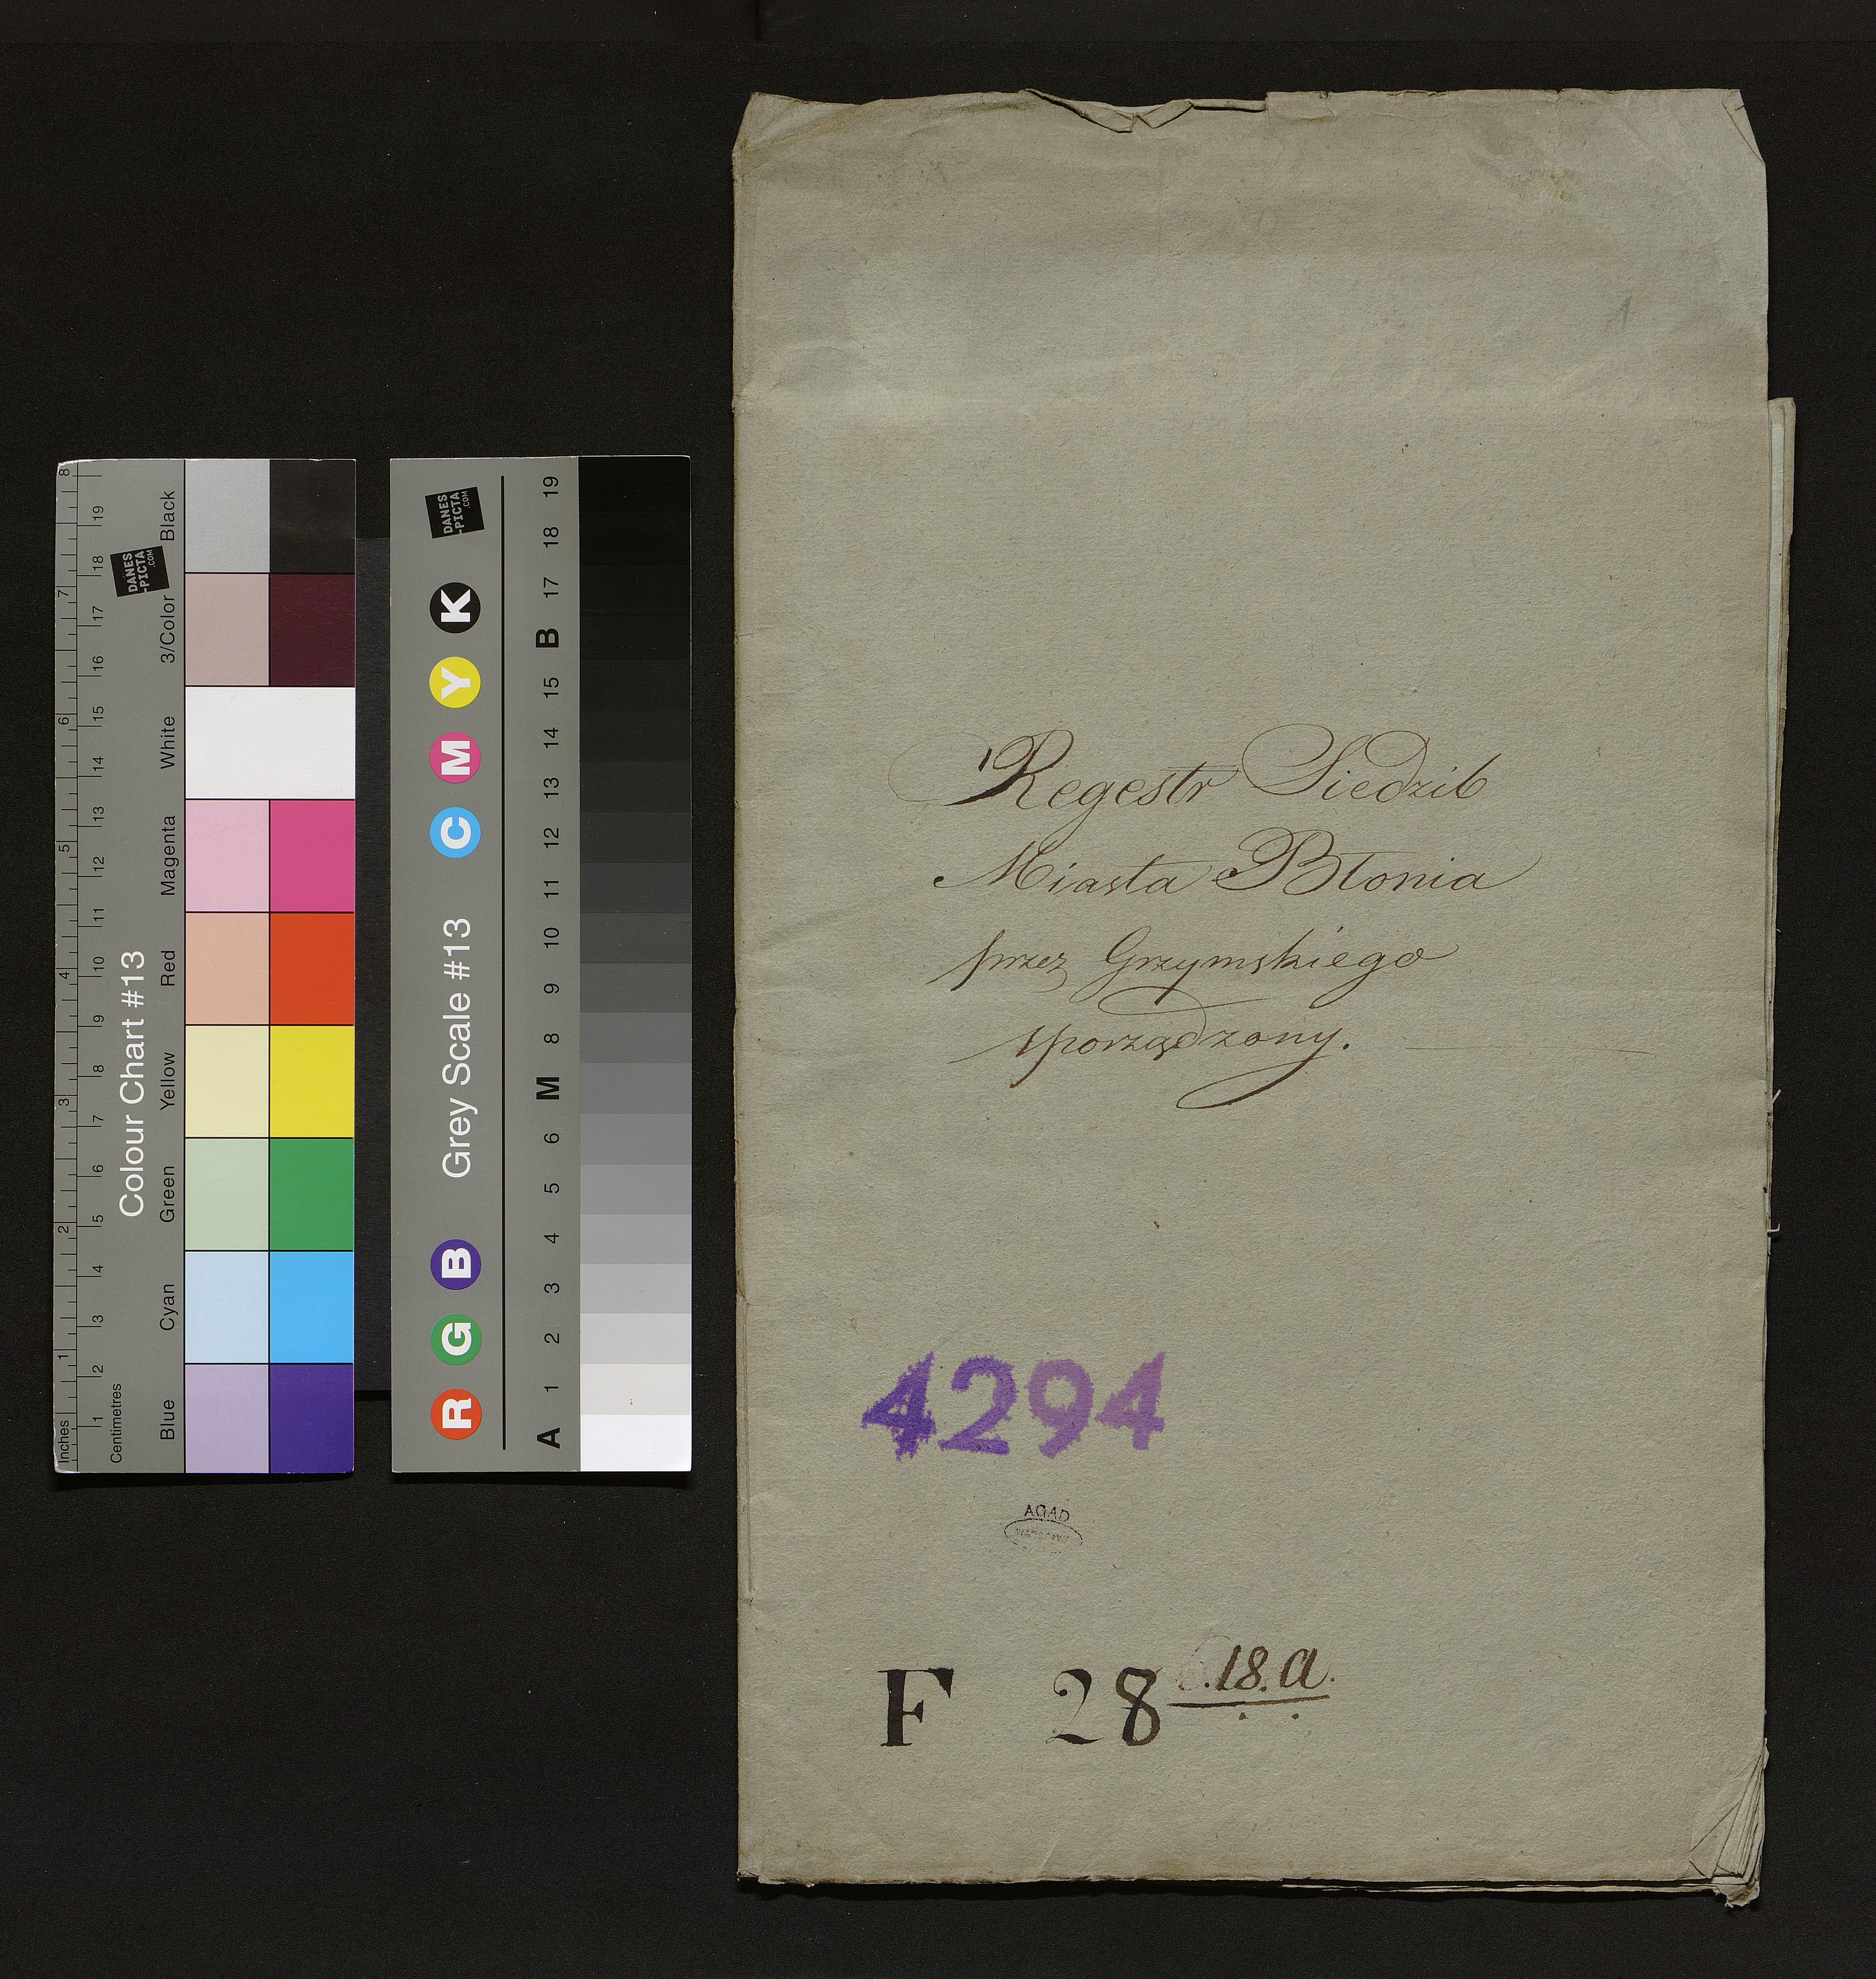 Regestr Siedzib
Miasta Błonia
przez Grzymskiego
sporządzony.
4294
AGAD
F 28 .18.a.
1
Colour Chart #13
Inches 1 2 3 4 5 6 7 8
Centimetres 1 2 3 4 5 6 7 8 9 10 11 12 13 14 15 16 17 18 19
Blue Cyan Green Yellow Red Magenta White 3/Color Black
DANES
-PICTA
.COM
R G B Grey Scale #13 C M Y K
DANES
-PICTA
.COM
A 1 2 3 4 5 6 M 8 9 10 11 12 13 14 15 B 17 18 19